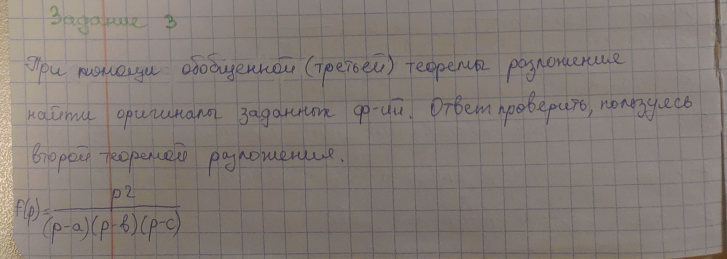 Задание 3
При помощи обобщенной (третьей) теоремы разложение
найти оригиналы заданных ф-ий. Ответ проверить, пользуясь
второй теоремой разложения.
f(p)= p2 / (p-a)(p-в)(p-c)